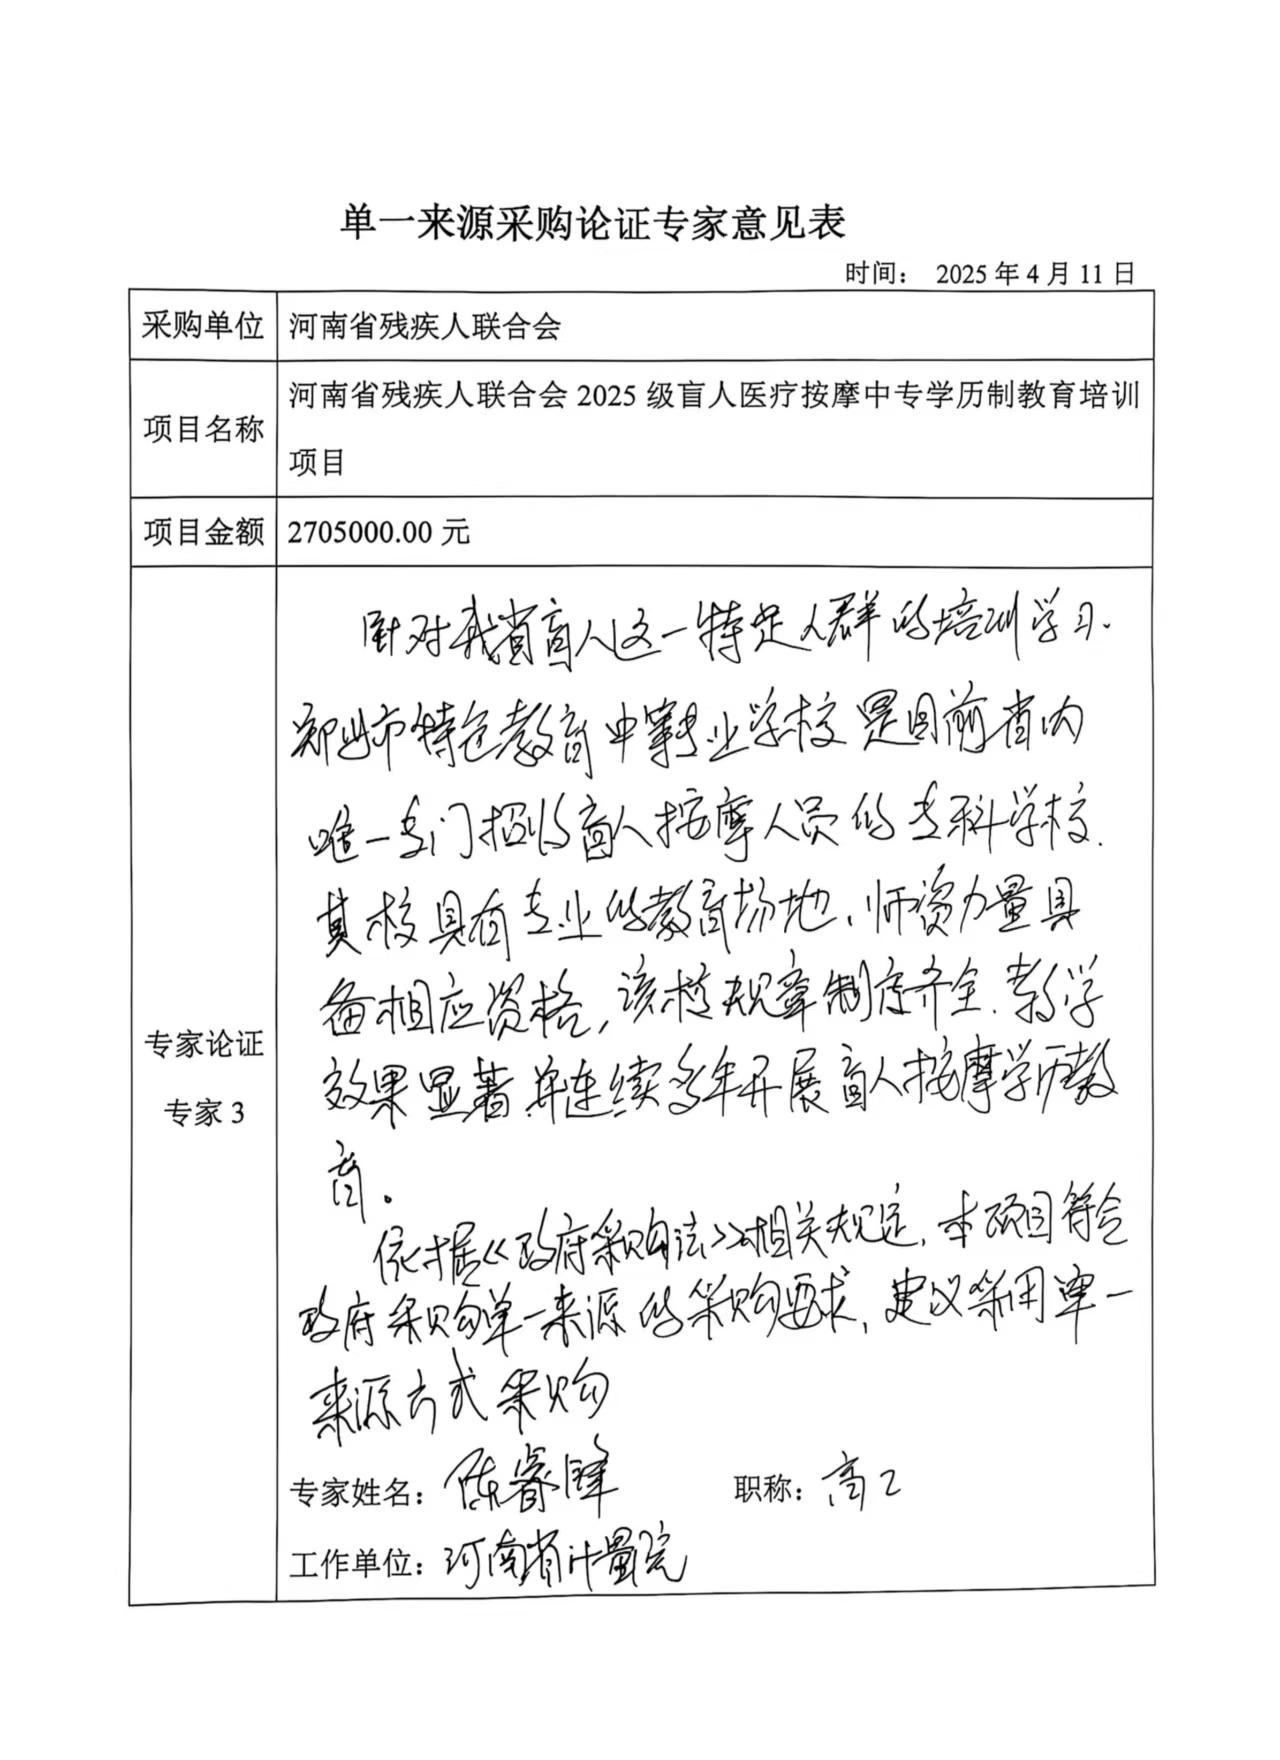 单一来源采购论证专家意见表
时间： 2025 年 4 月 11 日
采购单位
河南省残疾人联合会
项目名称
河南省残疾人联合会 2025 级盲人医疗按摩中专学历制教育培训
项目
项目金额
2705000.00 元
专家论证
专家 3
针对我省盲人这一特定人群的培训学习.
郑州市特色教育中等专业学校是目前省内
唯一专门招收盲人按摩人员的专科学校.
其校具有专业的教育场地、师资力量具
备相应资格,该校规章制度齐全.教学
效果显著.并连续多年开展盲人按摩学历教
育。
依据《政府采购法》相关规定,本项目符合
政府采购单一来源的采购要求,建议采用单一
来源方式采购
专家姓名：陈睿锋 职称：高工
工作单位：河南省计量院